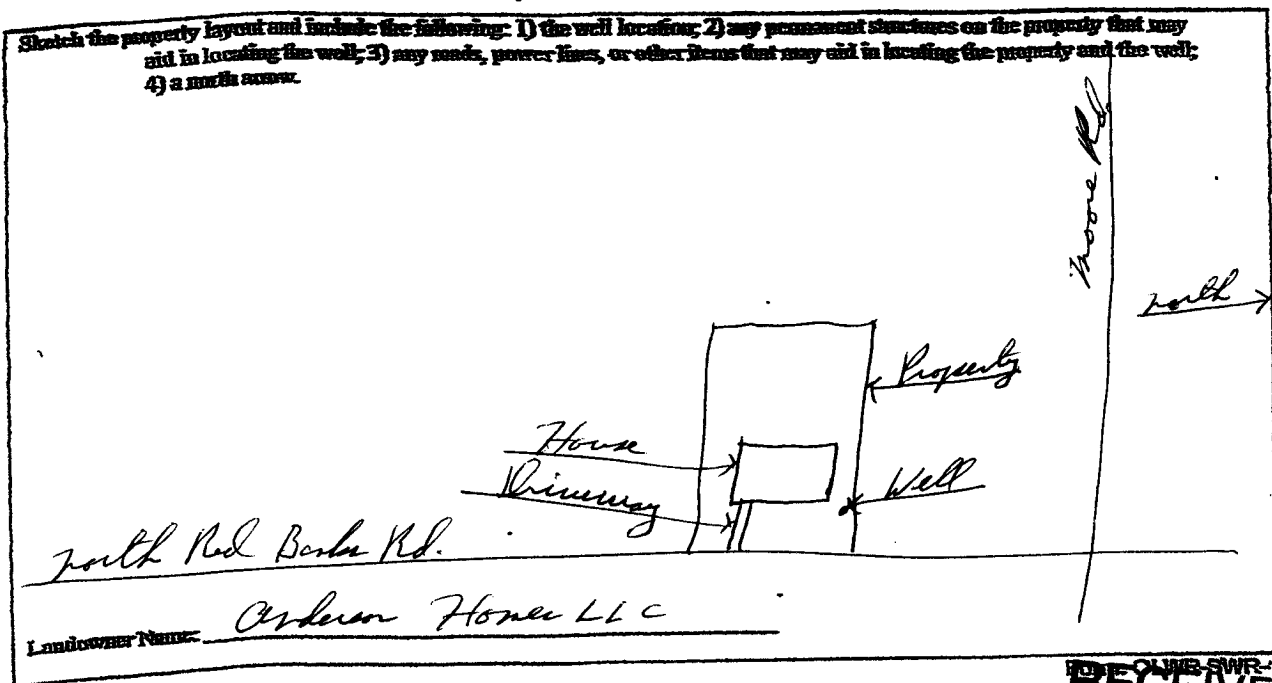 Sketch the property layout and include the following: 1) the well location; 2) any permanent structures on the property that may
aid in locating the well; 3) any roads, power lines, or other items that may aid in locating the property and the well;
4) a north arrow.
Moore Rd
north
Property
House
Driveway
Well
north Red Banks Rd.
Landowner Name: Anderson Homes LLC